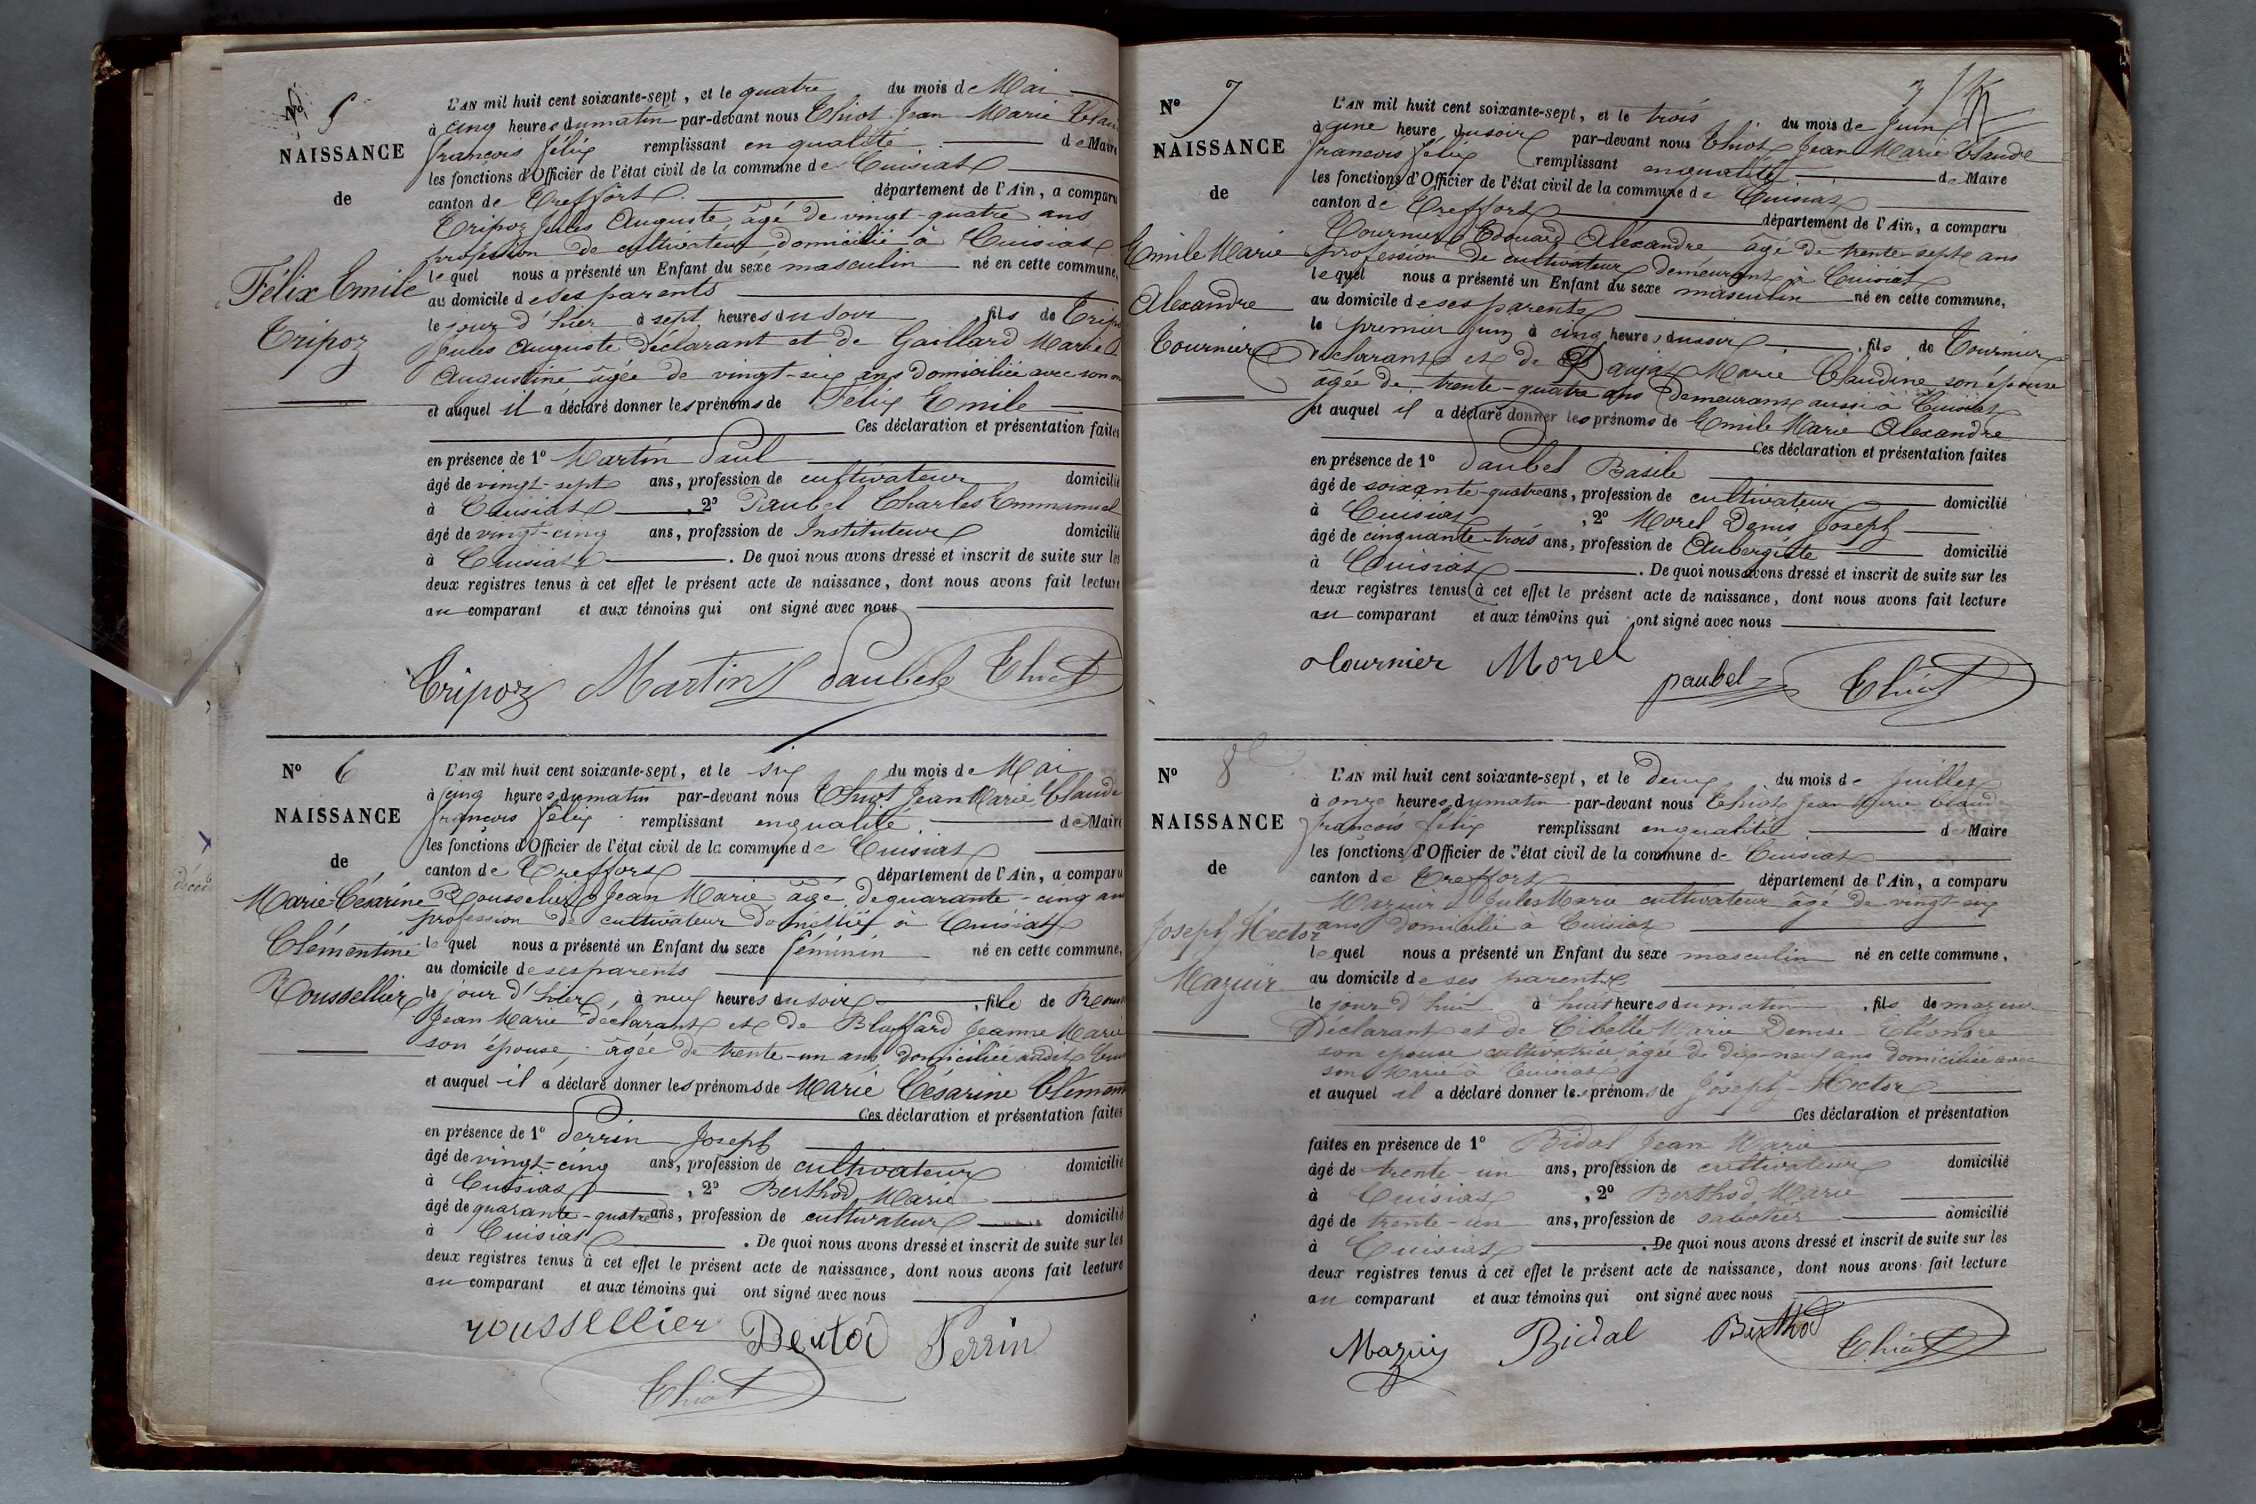 Nº 5
NAISSANCE
de
Félix Emile
Tripoz
L'AN mil huit cent soixante-sept, et le quatre du mois de Mai
à cinq heures du matin par-devant nous Thiot Jean Marie Clau
françois félix remplissant en qualité de Maire
les fonctions d'Officier de l'état civil de la commune de Cuisiat
canton de Treffort département de l'Ain, a comparu
Tripoz Jules Auguste âgé de vingt-quatre ans
profession de cultivateur domicilié à Cuisiat
lequel nous a présenté un Enfant du sexe masculin né en cette commune,
au domicile de ses parents
le jour d'hier à sept heures du soir fils de Tripo
Jules Auguste déclarant et de Gaillard Marie
Augustine âgée de vingt-six ans domiciliée avec son
et auquel il a déclaré donner les prénoms de Felix Emile
Ces déclaration et présentation faites
en présence de 1º Martin Paul
âgé de vingt-sept ans, profession de cultivateur domicilié
à Cuisiat, 2º Paubel Charles Emmanuel
âgé de vingt-cinq ans, profession de Instituteur domicilié
à Cuisiat. De quoi nous avons dressé et inscrit de suite sur les
deux registres tenus à cet effet le présent acte de naissance, dont nous avons fait lecture
au comparant et aux témoins qui ont signé avec nous
Tripoz Martin Paubel Thiot
Nº 6
NAISSANCE
de
Marie Césarine
Clémentine
Roussellier
L'AN mil huit cent soixante-sept, et le six du mois de Mai
à cinq heures du matin par-devant nous Thiot Jean Marie Claude
françois félix remplissant en qualité de Maire
les fonctions d'Officier de l'état civil de la commune de Cuisiat
canton de Treffort département de l'Ain, a comparu
Rousselier Jean Marie, âgé de quarante-cinq ans
profession de cultivateur domicilié à Cuisiat
lequel nous a présenté un Enfant du sexe féminin né en cette commune,
au domicile de ses parents
le jour d'hier, à neuf heures du soir, fille de Rous
Jean Marie déclarant et de Bluffard Jeanne Marie
son épouse, âgée de trente-un ans, domiciliée audit
et auquel il a déclaré donner les prénoms de Marie Césarine Clémen
Ces déclaration et présentation faites
en présence de 1º Perrin Joseph
âgé de vingt-cinq ans, profession de cultivateur domicilié
à Cuisiat, 2º Berthod Marie
âgé de quarante-quatre ans, profession de cultivateur domicilié
à Cuisiat. De quoi nous avons dressé et inscrit de suite sur les
deux registres tenus à cet effet le présent acte de naissance, dont nous avons fait lecture
au comparant et aux témoins qui ont signé avec nous
roussellier Bertod Perrin
Thiot
3
Nº 7
NAISSANCE
de
Emile Marie
Alexandre
Tournier
L'AN mil huit cent soixante-sept, et le trois du mois de Juin
à une heure du soir par-devant nous Thiot Jean Marie Claude
françois félix remplissant en qualité de Maire
les fonctions d'Officier de l'état civil de la commune de Cuisiat
canton de Treffort département de l'Ain, a comparu
Tournier Edouard Alexandre âgé de trente sept ans
profession de cultivateur demeurant à Cuisiat
lequel nous a présenté un Enfant du sexe masculin né en cette commune,
au domicile de ses parents
le premier juin à cinq heures du soir, fils de Tournier
déclarant et de Marie Claudine son épouse
âgée de trente-quatre ans demeurant aussi à Cuisiat
et auquel il a déclaré donner les prénoms de Emile Marie Alexandre
Ces déclaration et présentation faites
en présence de 1º Paubel Basile
âgé de soixante-quatre ans, profession de cultivateur domicilié
à Cuisiat, 2º Morel Denis Joseph
âgé de cinquante-trois ans, profession de Aubergiste domicilié
à Cuisiat. De quoi nous avons dressé et inscrit de suite sur les
deux registres tenus à cet effet le présent acte de naissance, dont nous avons fait lecture
au comparant et aux témoins qui ont signé avec nous
Tournier Morel paubel Thiot
Nº 8
NAISSANCE
de
Joseph Hector
Mazuir
L'AN mil huit cent soixante-sept, et le deux du mois de Juillet
à onze heures du matin par-devant nous Thiot Jean Marie Claude
françois félix remplissant en qualité de Maire
les fonctions d'Officier de l'état civil de la commune de Cuisiat
canton de Treffort département de l'Ain, a comparu
Mazuir Jules Marie cultivateur âgé de vingt-six
ans domicilié à Cuisiat
lequel nous a présenté un Enfant du sexe masculin né en cette commune,
au domicile de ses parents
le jour d'hui à huit heures du matin, fils de mazuir
Déclarant et de Cibelle Marie Denise Eléonore
son épouse cultivatrice, âgée de dix-neuf ans domiciliée avec
son Marie à Cuisiat
et auquel il a déclaré donner les prénoms de Joseph Hector
Ces déclaration et présentation
faites en présence de 1º Bidal Jean Marie
âgé de trente-un ans, profession de cultivateur domicilié
à Cuisiat, 2º Berthod Marie
âgé de trente-un ans, profession de sabotier domicilié
à Cuisiat. De quoi nous avons dressé et inscrit de suite sur les
deux registres tenus à cet effet le présent acte de naissance, dont nous avons fait lecture
au comparant et aux témoins qui ont signé avec nous
Mazuir Bidal Berthod Thiot